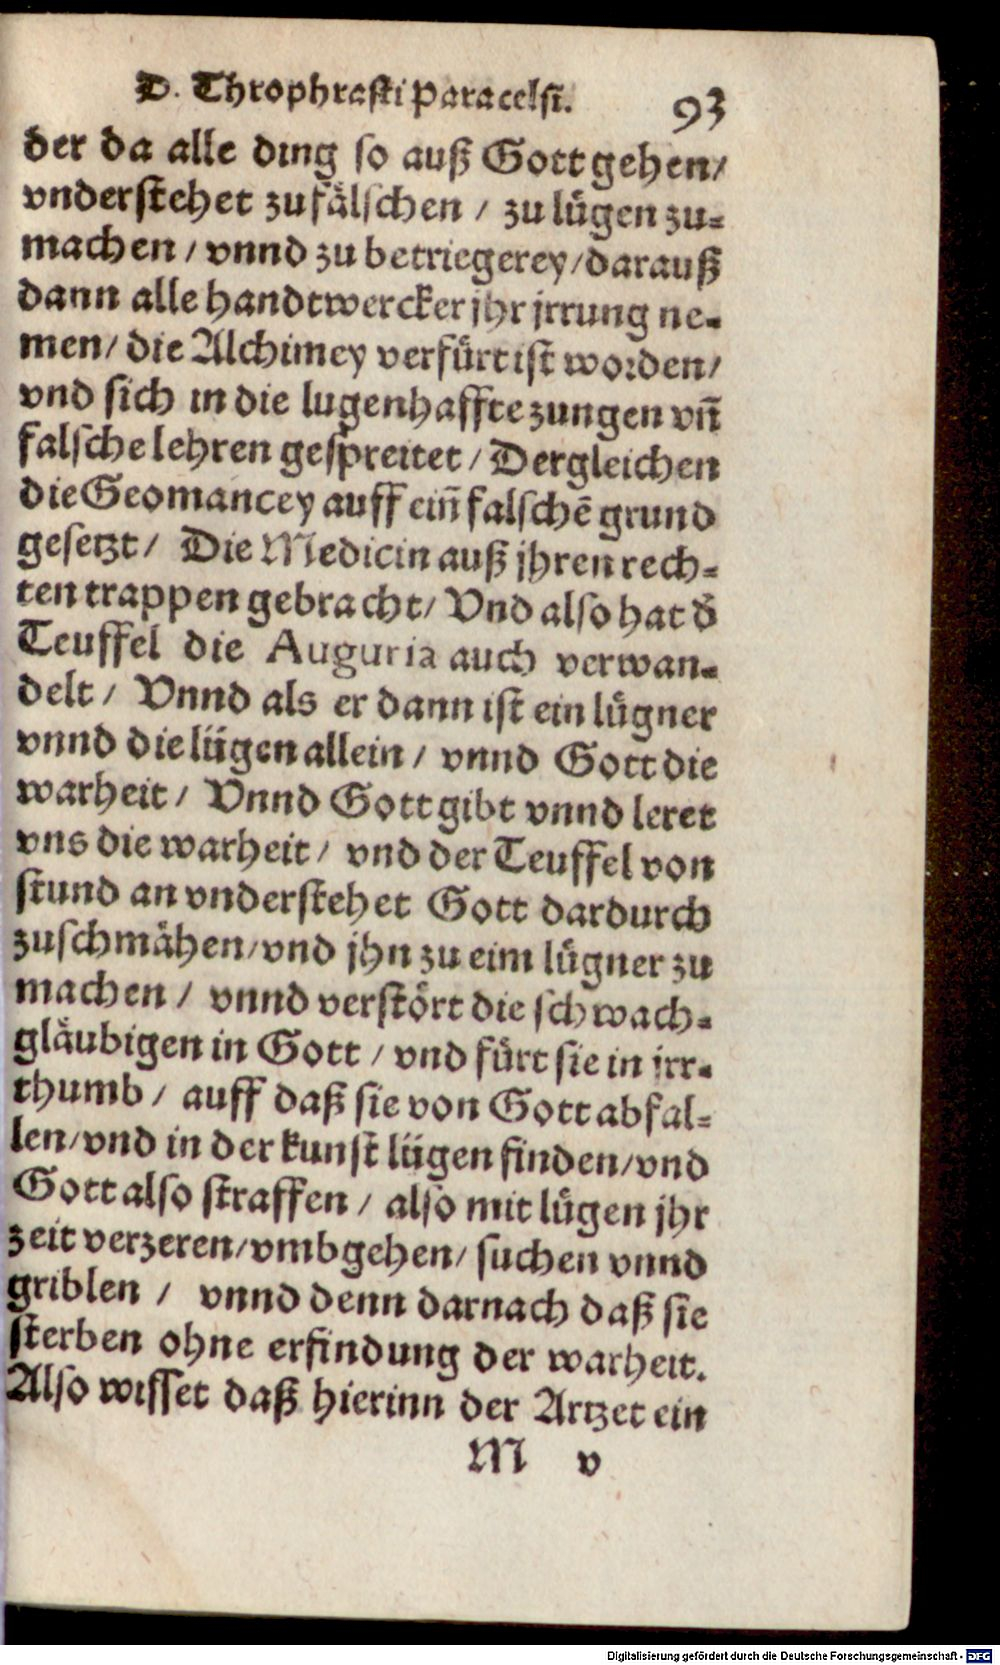 D. Throphrasti Paracelsi. 93
der da alle ding so auß Gott gehen/
vnderstehet zu fälschen / zu lügen zu-
machen / vnnd zu betriegerey/darauß
dann alle handtwercker jhr jrrung ne-
men/ die Alchimey verfürt ist worden/
vnd sich in die lugenhaffte zungen vñ
falsche lehren gespreitet / Dergleichen
die Geomancey auff eiñ falschē grund
gesetzt / Die Medicin auß jhren rech-
ten trappen gebracht/ Vnd also hat d̃
Teuffel die Auguria auch verwan-
delt / Vnnd als er dann ist ein lügner
vnnd die lügen allein / vnnd Gott die
warheit / Vnnd Gott gibt vnnd leret
vns die warheit / vnd der Teuffel von
stund an vnderstehet Gott dardurch
zuschmähen/vnd jhn zu eim lügner zu
machen / vnnd verstört die schwach-
gläubigen in Gott / vnd fürt sie in irr-
thumb / auff daß sie von Gott abfal-
len/vnd in der kunst lügen finden/vnd
Gott also straffen / also mit lügen jhr
zeit verzeren/vmbgehen/ suchen vnnd
griblen / vnnd denn darnach daß sie
sterben ohne erfindung der warheit.
Also wisset daß hierinn der Artzet ein
M v
Digitalisierung gefördert durch die Deutsche Forschungsgemeinschaft - DFG